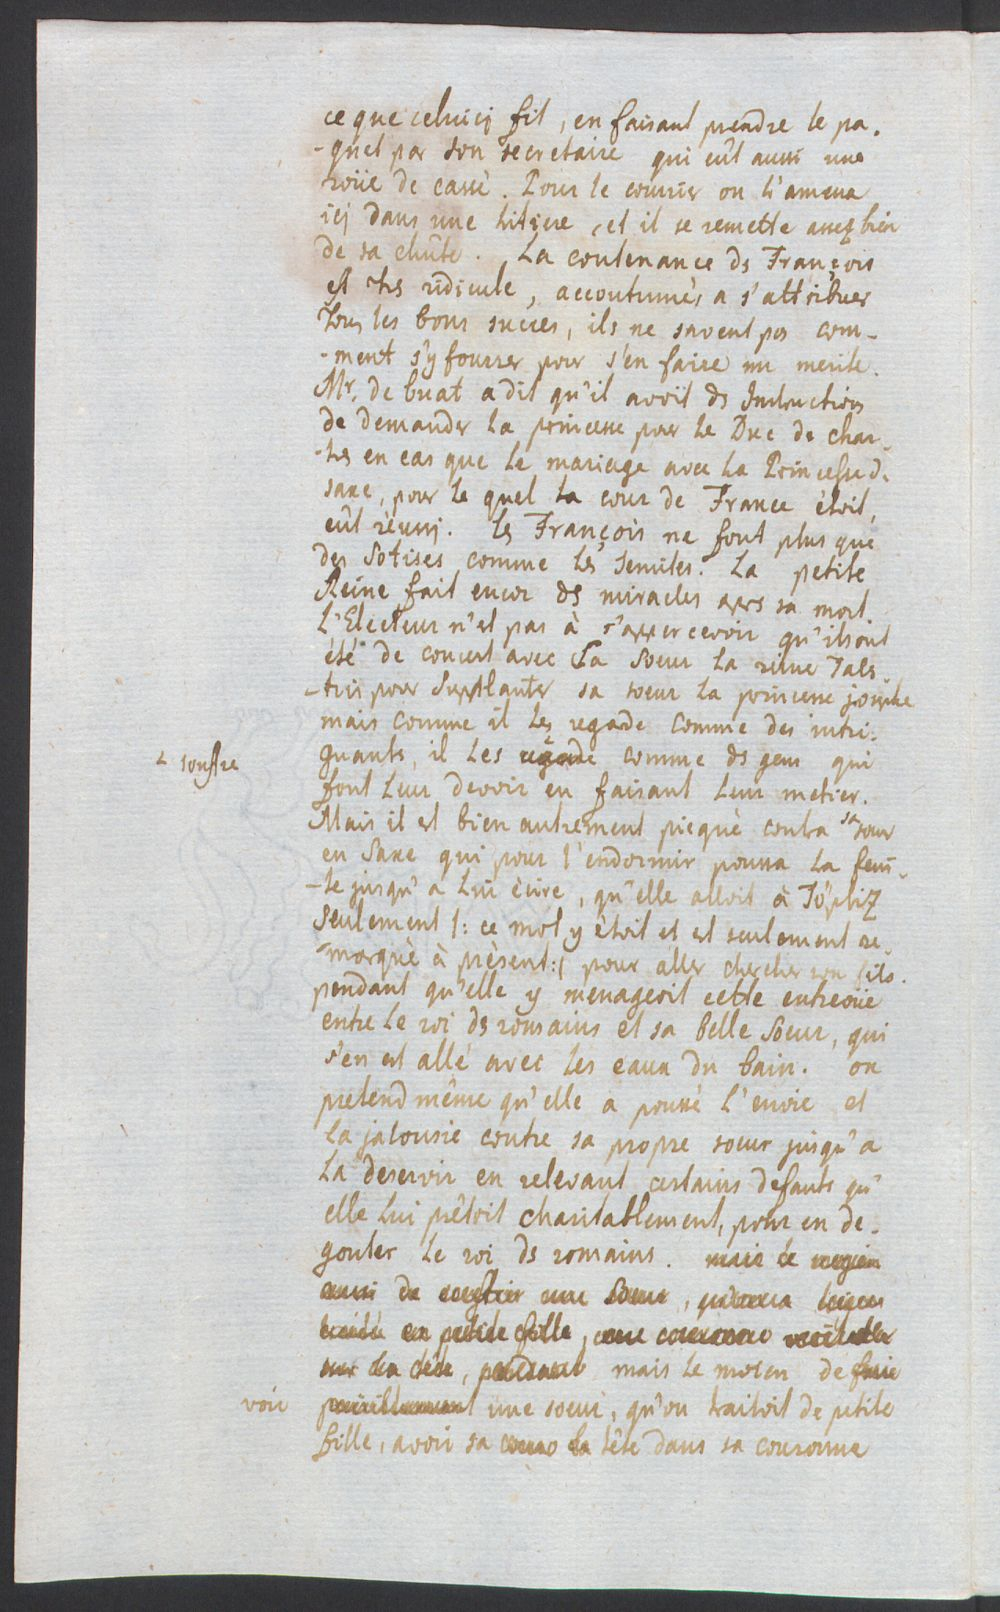 ce que celuicij fit, en faisant prendre le pa-
-quet par son secretaire qui eût aussi une
roüe de cassé. Pour le courier on l'amena
icj dans une litiere, et il se remette assez bien
de sa chûte. La contenance ds François
est trs ridicule, accoutumés a s'attribuer
tous les bons succes, ils ne savent pas com-
-ment s'y fourrer pour s'en faire un merite.
Mr. de buat a dit qu'il avoit ds Instructions
de demander la princesse pour le Duc de char-
-trs en cas que le mariage avec la Princesse de
saxe, pour le quel la cour de France étoit,
eût réussj. Ls François ne font plus que
des sotises comme les Jesuites. La petite
Reine fait encor ds miracles aprs sa mort.
L'Electeur n'est pas à s'appercevoir qu'ils ont
été de concert avec sa soeur la reine Tals-
-tris pour supplanter sa soeur la princesse josephe
mais comme il les regarde comme des intri-
guants, il les regarde comme ds gens qui
souffre
font leur devoir en faisant leur metier.
Mais il est bien autrement picqué contra sa soeur
en Saxe qui pour l'endormir poussa la fein-
-te jusqu'a lui écire, qu'elle alloit à Töplitz
seulement /: ce mot y étoit et est seulement re-
-marqué à présent :/ pour aller chercher son fils.
pendant qu'elle y menageoit cette entrevüe
entre le roi ds romains et sa belle soeur, qui
s'en est allé avec les eaux du bain. on
pretend même qu'elle a poussé l'envie et
la jalousie contre sa propre soeur jusqu'a
la deservir en relevant certains defauts qu'
elle lui prêtoit charitablement, pour en de-
gouter le roi ds romains. mais le moyen
aussi de une soeur,
en petite fille, une couronne
sur la tête, pendant mais le moien de
voir
une soeur, qu'on traitoit de petite
fille, avoir sa la tête dans sa couronne